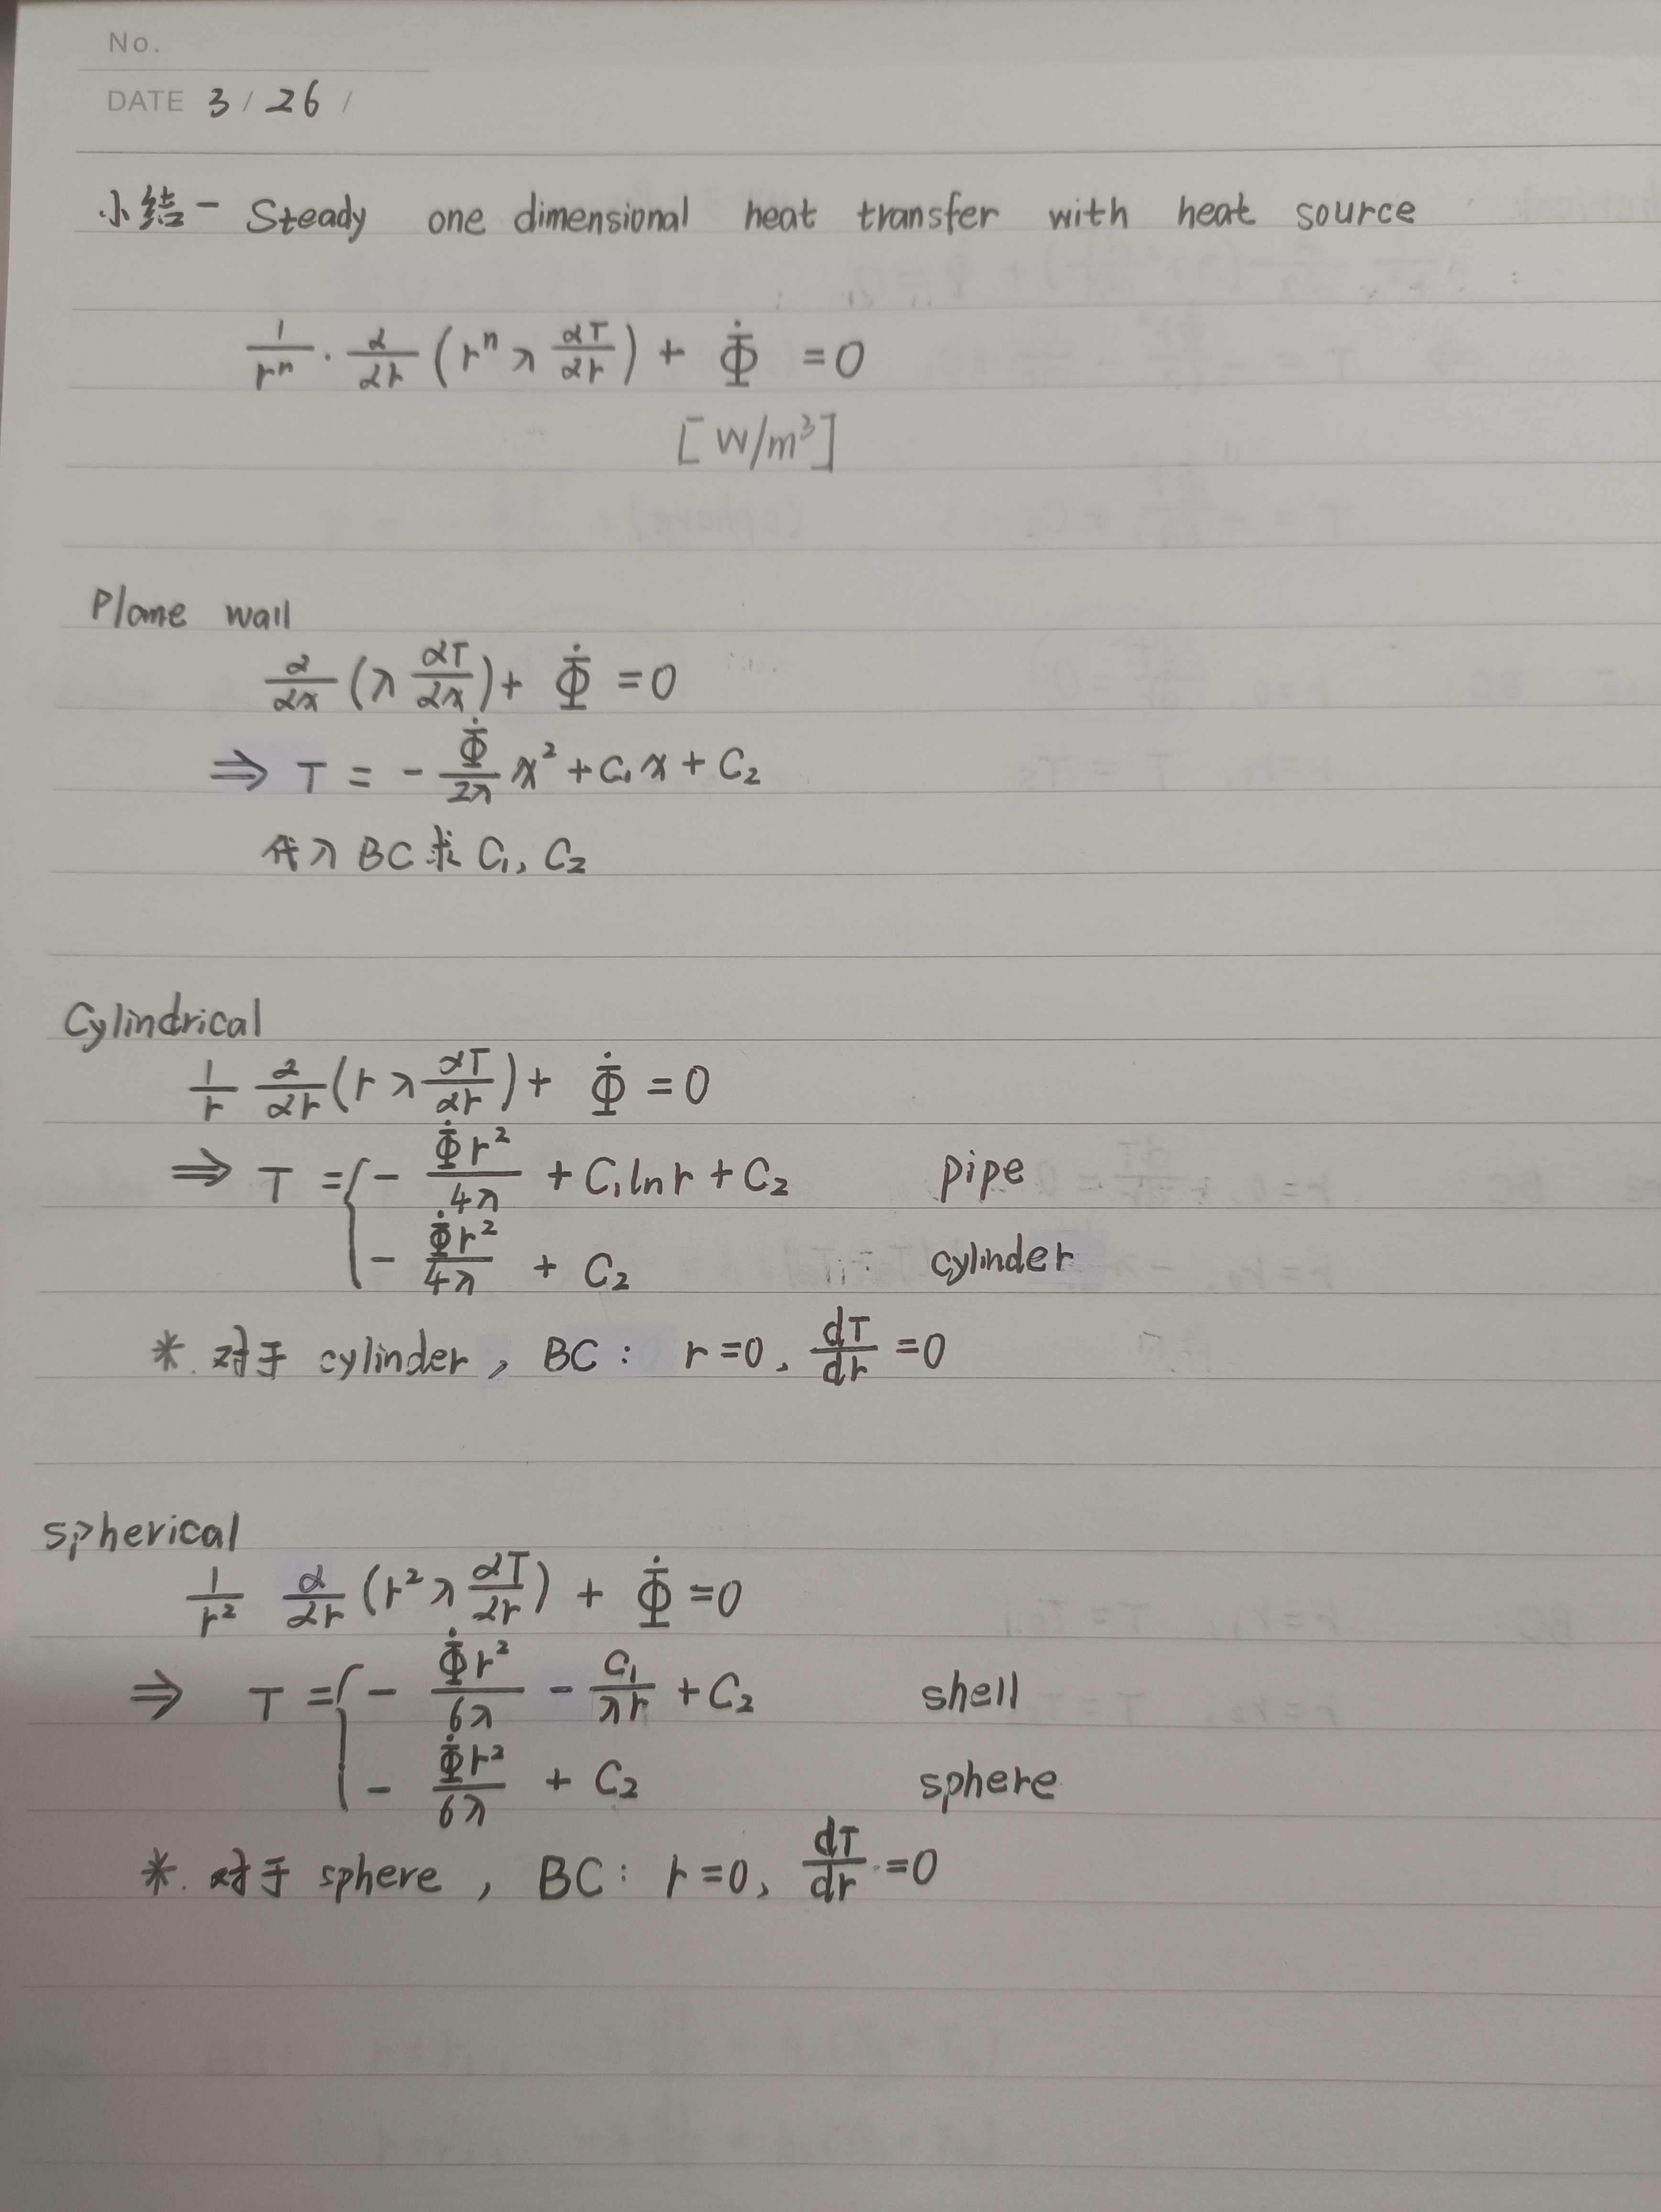 No.
DATE 3 / 26 /
小结一 Steady one dimensional heat transfer with heat source
1/rⁿ · ∂/∂r (rⁿ λ ∂T/∂r) + Φ̇ = 0
[W/m³]
Plane wall
∂/∂x (λ ∂T/∂x) + Φ̇ = 0
⇒ T = - Φ̇/2λ x² + C₁x + C₂
代入 BC 求 C₁, C₂
Cylindrical
1/r ∂/∂r (r λ ∂T/∂r) + Φ̇ = 0
⇒ T = { - Φ̇r²/4λ + C₁lnr + C₂ pipe
- Φ̇r²/4λ + C₂ cylinder
* 对于 cylinder, BC: r=0, dT/dr =0
spherical
1/r² ∂/∂r (r² λ ∂T/∂r) + Φ̇ =0
⇒ T = { - Φ̇r²/6λ - C₁/λr + C₂ shell
- Φ̇r²/6λ + C₂ sphere
* 对于 sphere, BC: r=0, dT/dr =0